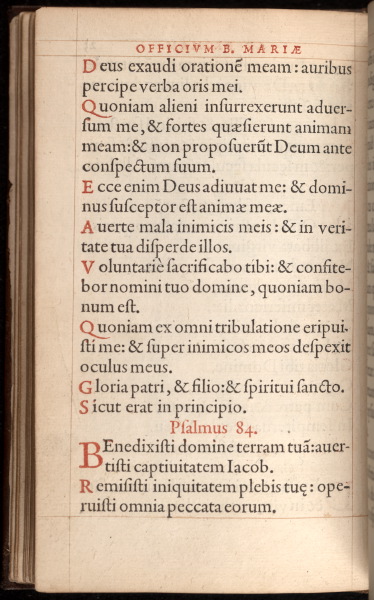 OFFICIVM B. MARIÆ
Deus exaudi orationē meam: auribus
percipe verba oris mei.
Quoniam alieni insurrexerunt aduer-
sum me, & fortes quæsierunt animam
meam: & non proposuerūt Deum ante
conspectum suum.
Ecce enim Deus adiuuat me: & domi-
nus susceptor est animæ meæ.
Auerte mala inimicis meis: & in veri-
tate tua disperde illos.
Voluntariè sacrificabo tibi: & confite-
bor nomini tuo domine, quoniam bo-
num est.
Quoniam ex omni tribulatione eripui-
sti me: & super inimicos meos despexit
oculus meus.
Gloria patri, & filio: & spiritui sancto.
Sicut erat in principio.
Psalmus 84.
BEnedixisti domine terram tuā: auer-
tisti captiuitatem Iacob.
Remisisti iniquitatem plebis tuę: ope-
ruisti omnia peccata eorum.